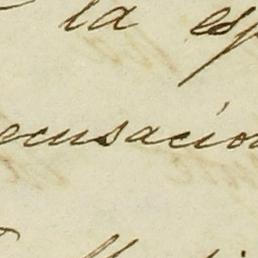 la esp
ecusacion